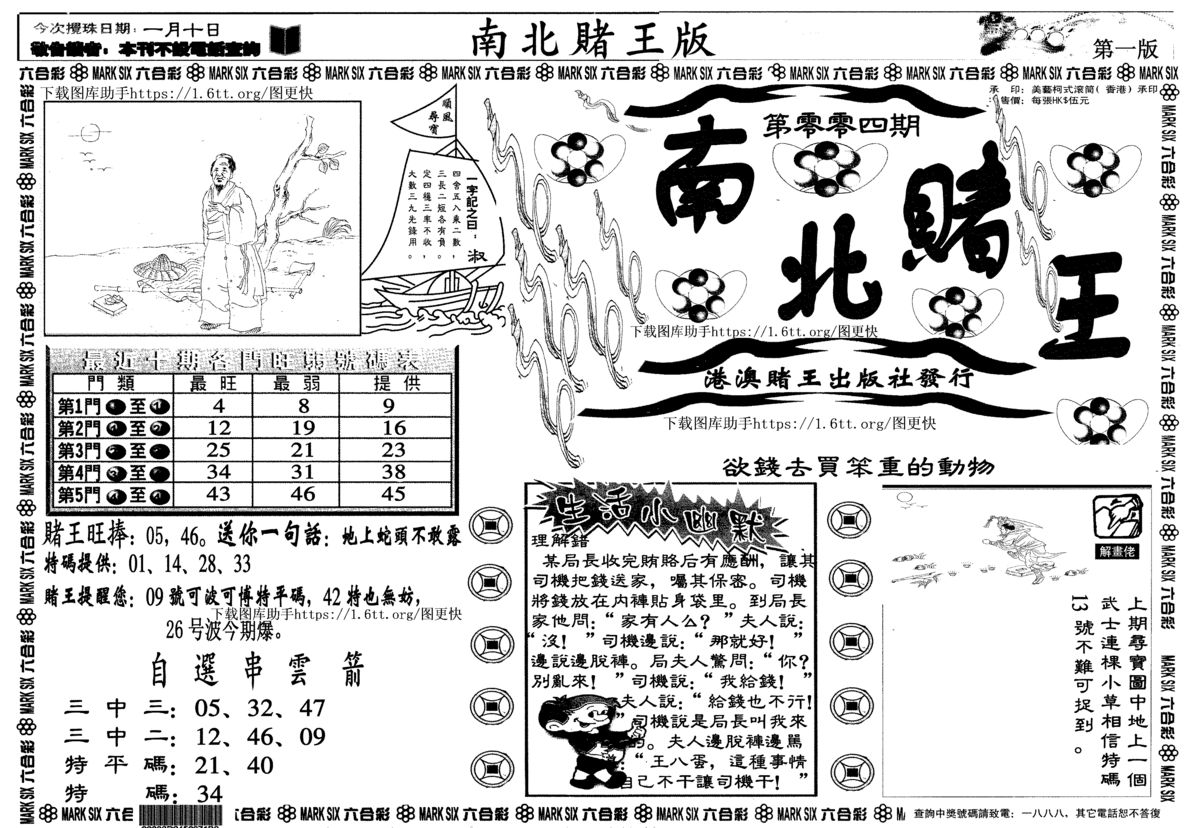 今次攪珠日期：一月十日
敬告讀者：本刊不設電話查詢
南北賭王版
第一版
六合彩 MARK SIX 六合彩 MARK SIX 六合彩 MARK SIX 六合彩 MARK SIX 六合彩 MARK SIX 六合彩 MARK SIX 六合彩 MARK SIX 六合彩 MARK SIX 六合彩 MARK SIX 六合彩 MARK SIX
下载图库助手https://1.6tt.org/图更快
承印：美藝柯式滾筒(香港)承印
售價：每張HK$伍元
順風尋寶
一字記之曰：淑
四舍五入乘二數，
三長二短各有負。
定四穩三率不收，
大數三九先鋒用。
第零零四期
南北賭王
下载图库助手https://1.6tt.org/图更快
港澳賭王出版社發行
下载图库助手https://1.6tt.org/图更快
最近十期各門旺弱號碼表
門類 最旺 最弱 提供
第1門 至 4 8 9
第2門 至 12 19 16
第3門 至 25 21 23
第4門 至 34 31 38
第5門 至 43 46 45
賭王旺捧：05，46。送你一句話：地上蛇頭不敢露
特碼提供：01、14、28、33
賭王提醒您：09 號可波可博特平碼，42 特也無妨，
下载图库助手https://1.6tt.org/图更快
26 号波今期爆。
自選串雲箭
三中三：05、32、47
三中二：12、46、09
特平碼：21、40
特碼：34
欲錢去買笨重的動物
生活小幽默
理解錯
某局長收完賄賂后有應酬，讓其
司機把錢送家，囑其保密。司機
將錢放在内褲貼身袋里。到局長
家他問：“家有人么？”夫人説：
“没！”司機邊説：“那就好！”
邊説邊脱褲。局夫人驚問：“你？
别亂來！”司機説：“我給錢！”
夫人説：“給錢也不行！
”司機説是局長叫我來
的。夫人邊脱褲邊罵
：“王八蛋，這種事情
自己不干讓司機干！”
解畫佬
上期尋寶圖中地上一個
武士連棵小草相信特碼
13號不難可捉到。
MARK SIX 六合彩 MARK SIX 六合彩 MARK SIX 六合彩 MARK SIX 六合彩 MARK SIX 六合彩 MARK SIX 六合彩
查詢中獎號碼請致電：一八八八，其它電話恕不答復